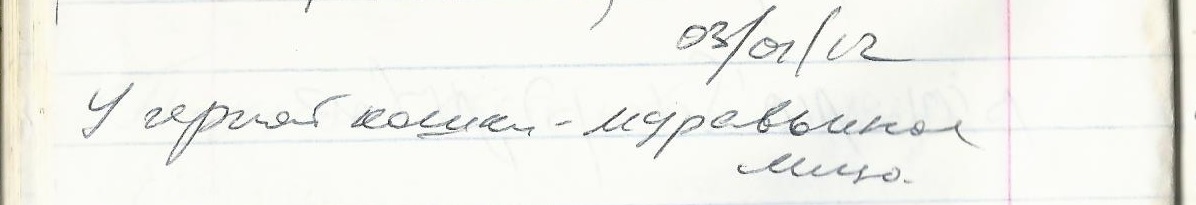 03/01/12
У черной кошки - муравьиное
лицо.